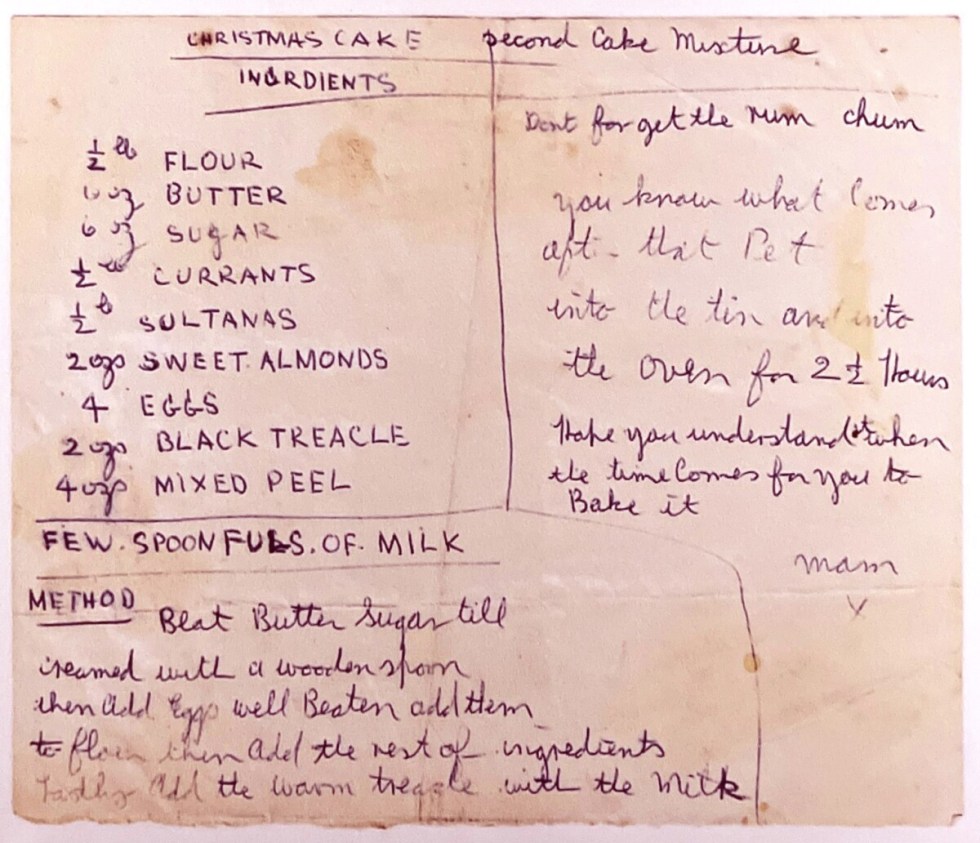 CHRISTMAS CAKE
INGRDIENTS
½ lb FLOUR
6 oz BUTTER
6 oz SUGAR
½ lb CURRANTS
½ lb SULTANAS
2 ozs SWEET ALMONDS
4 EGGS
2 ozs BLACK TREACLE
4 ozs MIXED PEEL
FEW. SPOONFULS. OF. MILK
METHOD Beat Butter Sugar till
creamed with a wooden spoon
then Add Eggs well Beaten add them
to flour then Add the rest of ingredients
Lastly Add the warm treacle with the Milk
second Cake Mixture
Dont forget the rum chum
you know what Comes
aft. that Pet
into the tin and into
the oven for 2½ Hours
Hope you understand it when
the time Comes for you to
Bake it
mam
X